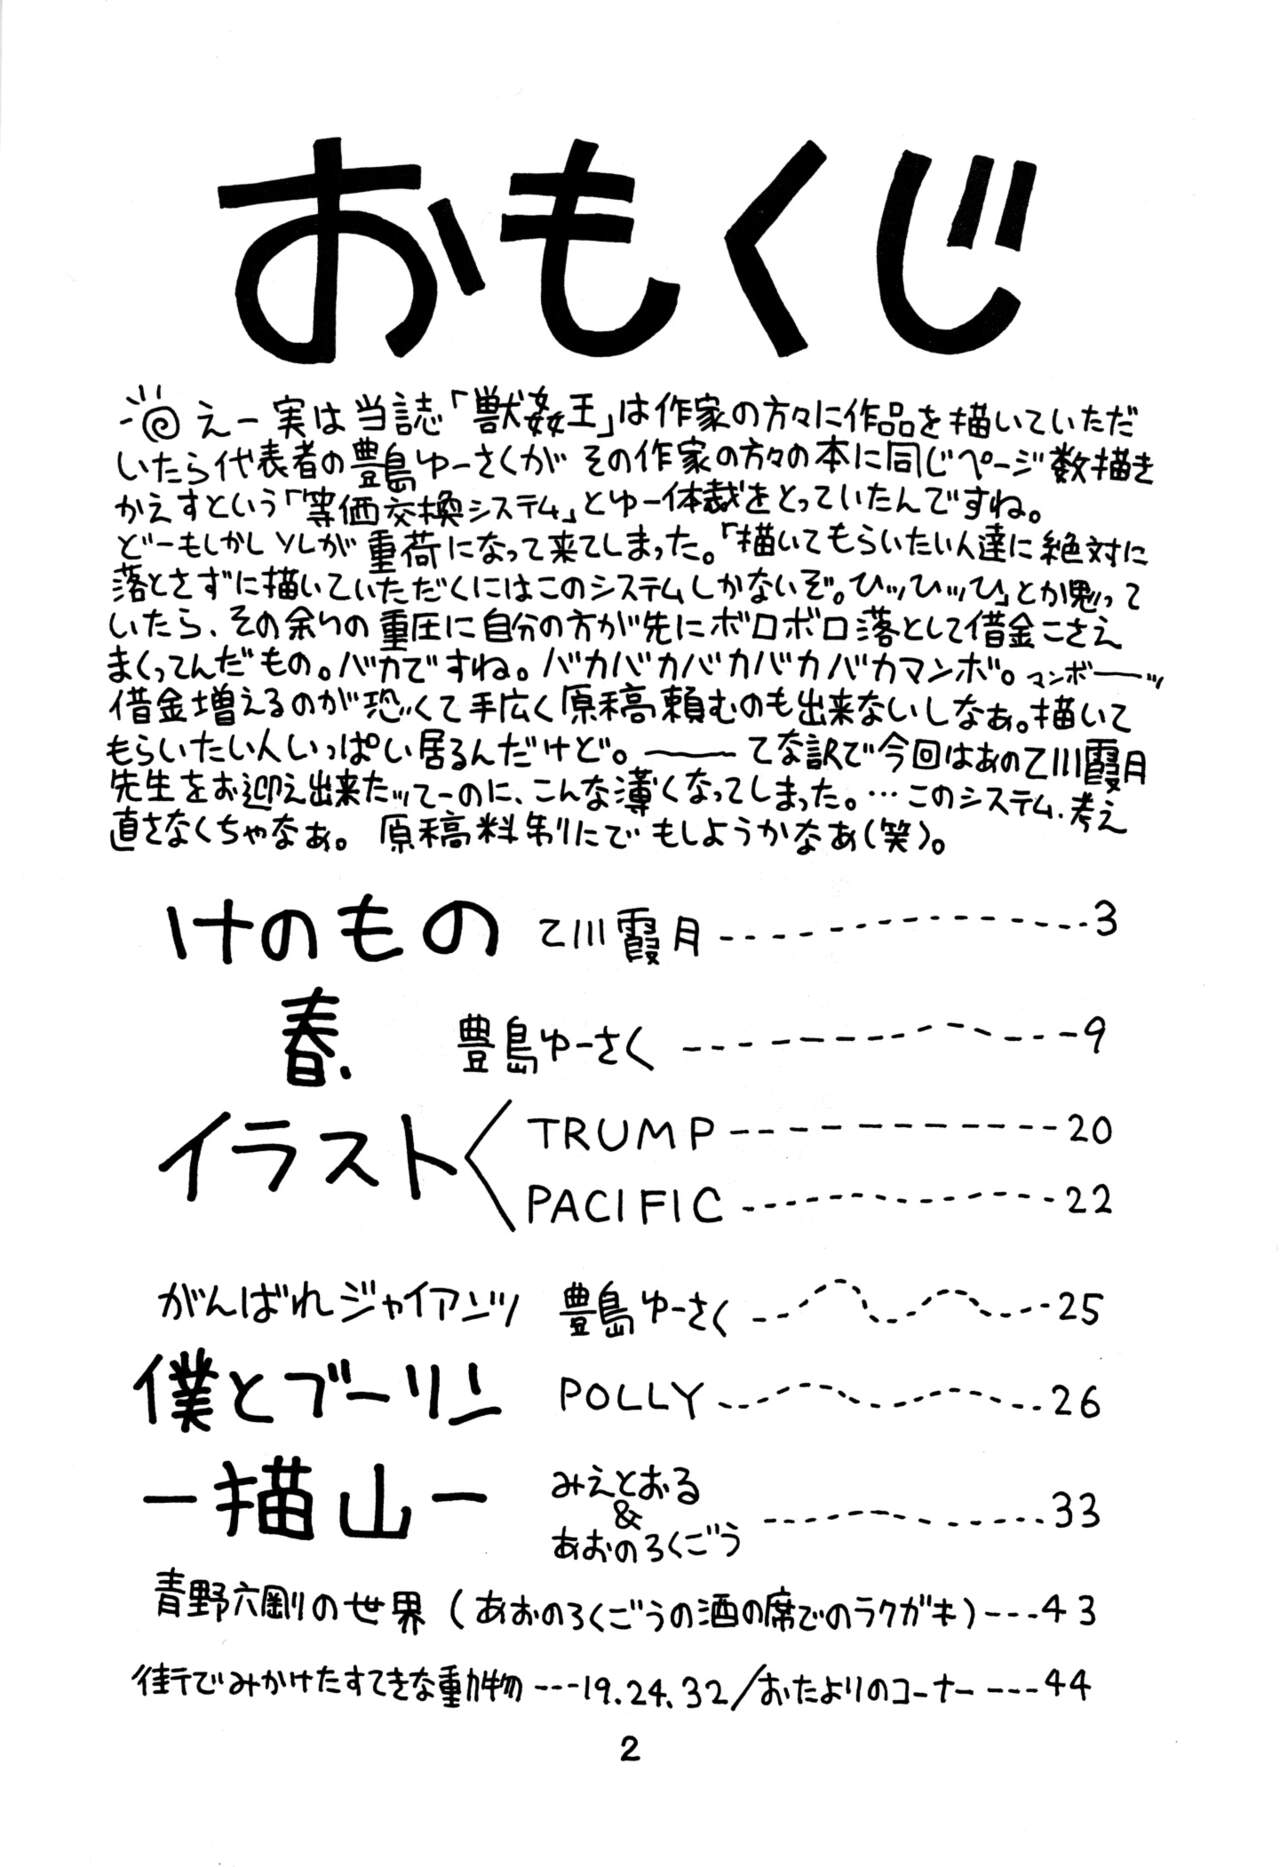 おもくじ
えー実は当誌「獣姦王」は作家の方々に作品を描いていただ
いたら代表者の豊島ゆーさくが その作家の方々の本に同じページ数描き
かえすという「等価交換システム」とゆー体裁をとっていたんですね。
どーもしかしソレが重荷になって来てしまった。「描いてもらいたい人達に絶対に
落とさずに描いていただくにはこのシステムしかないぞ。ひッひッひ」とか思って
いたら、その余りの重圧に自分の方が先にボロボロ落として借金こさえ
まくってんだもの。バカですね。バカバカバカバカバカマンボ。マンボーーッ
借金増えるのが恐くて手広く原稿頼むのも出来ないしなぁ。描いて
もらいたい人いっぱい居るんだけど。――てな訳で今回はあの乙川霞月
先生をお迎え出来たッてーのに、こんな薄くなってしまった。…このシステム、考え
直さなくちゃなぁ。 原稿料制にでもしようかなあ(笑)。
けのもの 乙川霞月 ---------- 3
春. 豊島ゆーさく ---------- 9
イラスト TRUMP ---------- 20
PACIFIC ---------- 22
がんばれジャイアンツ 豊島ゆーさく ---------- 25
僕とブーリン POLLY ---------- 26
ー描山ー みえとおる & あおのろくごう ---------- 33
青野六剛の世界(あおのろくごうの酒の席でのラクガキ)---43
街でみかけたすてきな動物---19.24.32/おたよりのコーナー---44
2